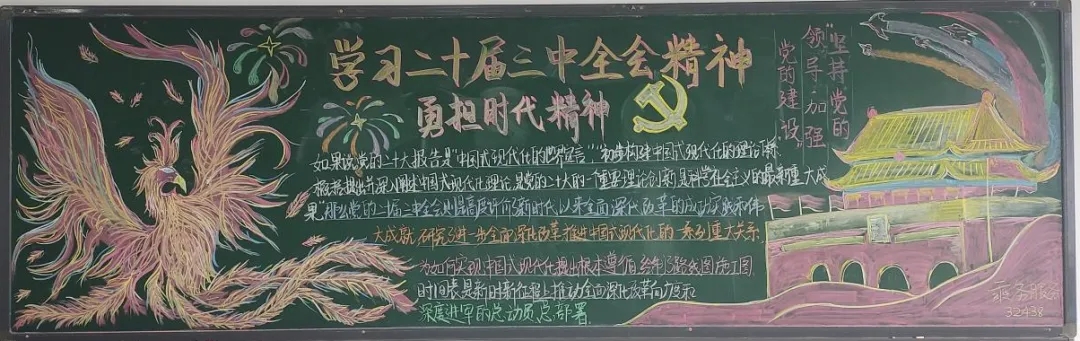 学习二十届三中全会精神
勇担时代精神
"坚持党的
领导·加强
党的建设
如果说党的二十大报告是"中国式现代化的世界宣言",初步构建中国式现代化的理论
概括提出并深入阐述中国式现代化理论,是党的二十大的一个重要理论创新,是科学社会主义的最新重大成
果"那么党的二十届三中全会则高度评价新时代以来全面深化改革的成功实践和伟
大成就 研究了进一步全面深化改革推进中国式现代化的一系列重大关系
为如何实现中国式现代化提出根本遵循 绘制了路线图施工图
时间表是新时代新征程上推动全面深化改革向广度和
深度进军的总动员总部署.
乘务服务
32438